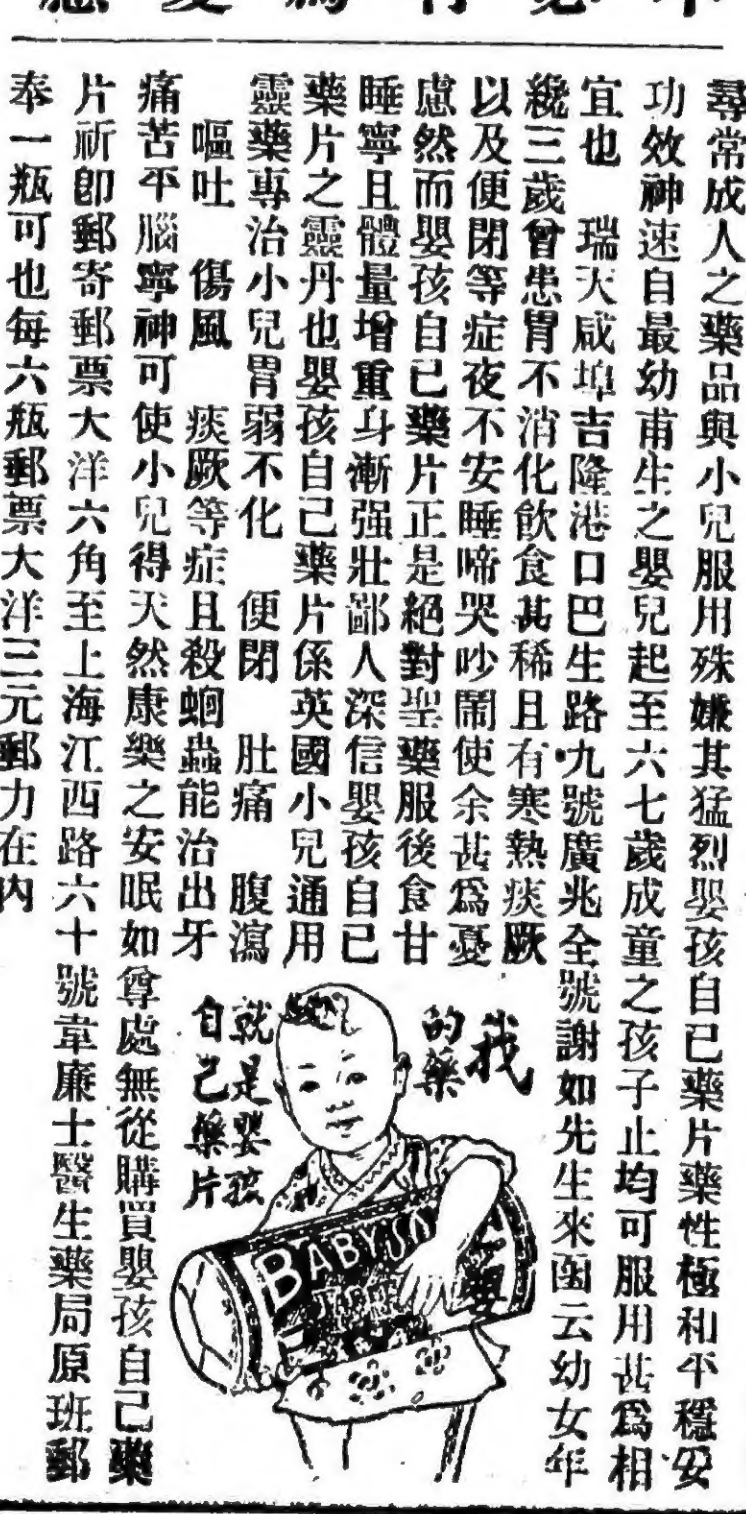 尋常成人之藥品與小兒服用殊嫌其猛烈嬰孩自已藥片藥性極和平穩安
功效神速自最幼甫生之嬰兒起至六七歲成童之孩子止均可服用甚爲相
宜也　瑞天咸埠吉隆港口巴生路九號廣兆全號謝如先生來函云幼女年
纔三歲曾患胃不消化飲食甚稀且有寒熱痰厥
以及便閉等症夜不安睡啼哭吵鬧使余甚爲憂
慮然而嬰孩自已藥片正是絕對聖藥服後食甘
睡寧且體量增重身漸强壯鄙人深信嬰孩自已
藥片之靈丹也嬰孩自己藥片係英國小兒通用
靈藥專治小兒胃弱不化　便閉　肚痛　腹瀉
嘔吐　傷風　痰厥等症且殺蛔蟲能治出牙
痛苦平腦寧神可使小兒得天然康樂之安眠如尊處無從購買嬰孩自己藥
片祈卽郵寄郵票大洋六角至上海江西路六十號韋廉士醫生藥局原班郵
奉一瓶可也每六瓶郵票大洋三元郵力在內
我
的藥
就是嬰孩
自己藥片
BABY'S